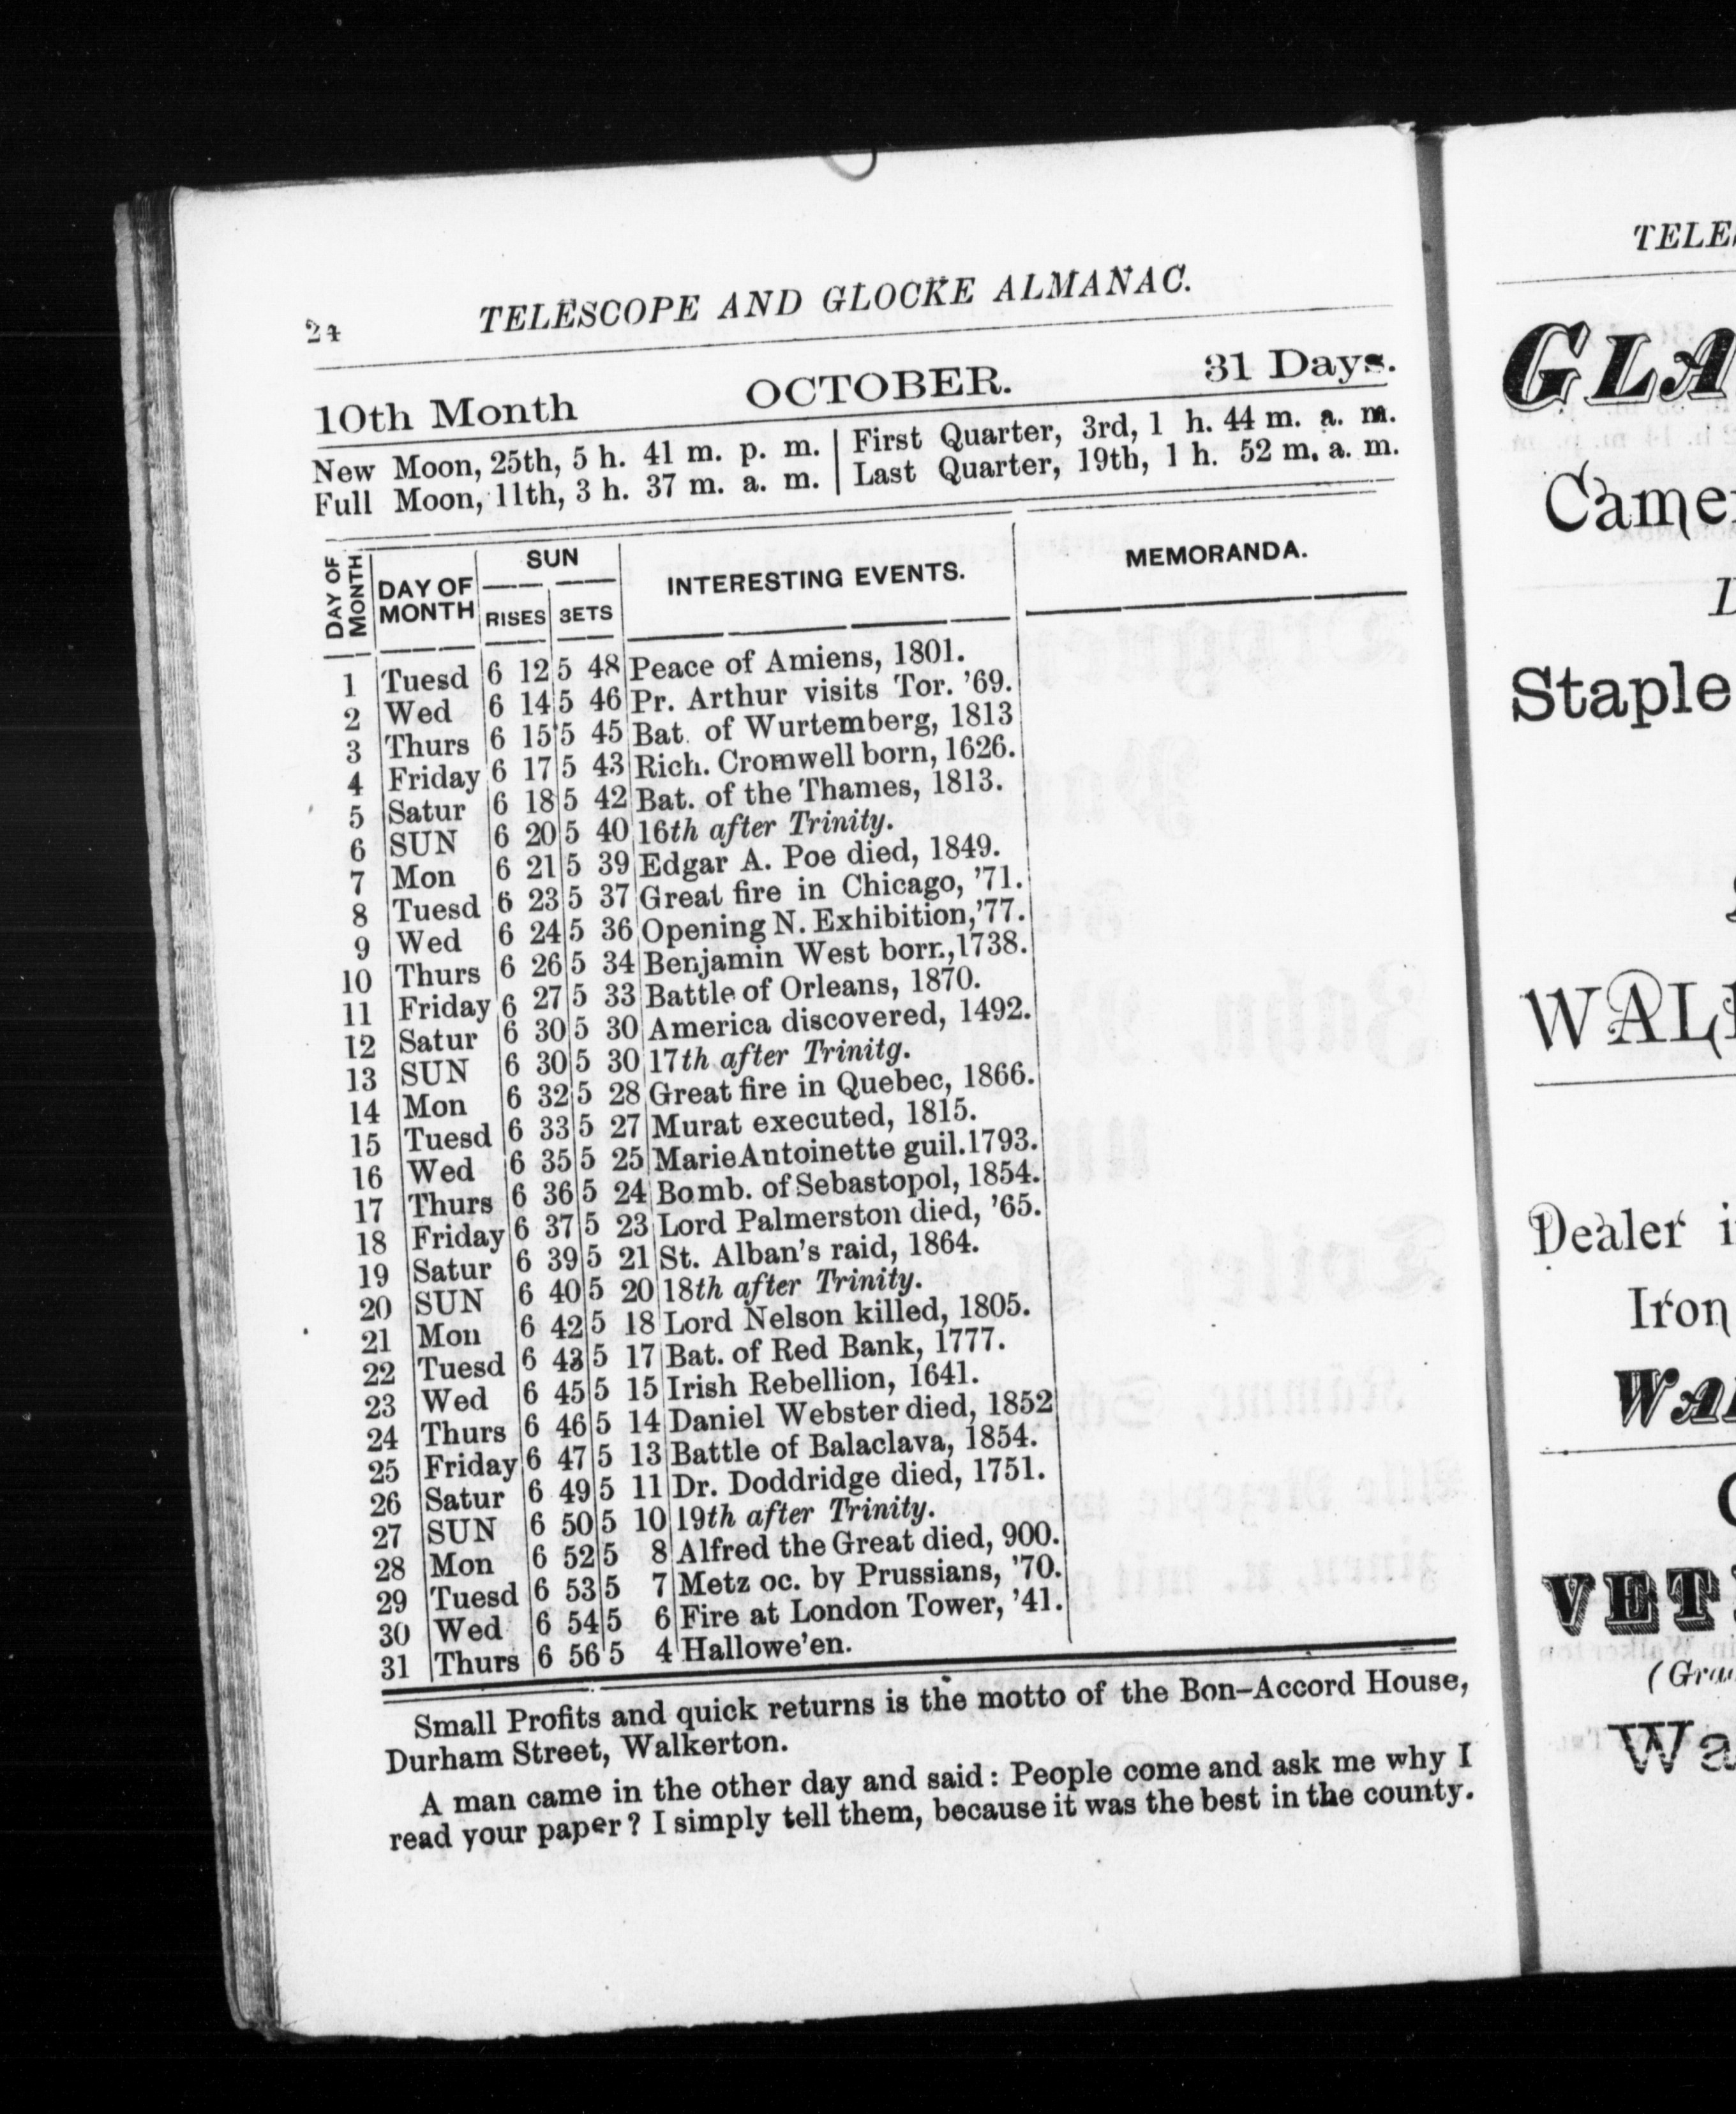 24 TELESCOPE AND GLOCKE ALMANAC.
10th Month OCTOBER. 31 Days.
New Moon, 25th, 5 h. 41 m. p. m. | First Quarter, 3rd, 1 h. 44 m. a. m.
Full Moon, 11th, 3 h. 37 m. a. m. | Last Quarter, 19th, 1 h. 52 m. a. m.
DAY OF MONTH DAY OF MONTH SUN RISES SETS INTERESTING EVENTS. MEMORANDA.
1 Tuesd 6 12 5 48 Peace of Amiens, 1801.
2 Wed 6 14 5 46 Pr. Arthur visits Tor. '69.
3 Thurs 6 15 5 45 Bat. of Wurtemberg, 1813
4 Friday 6 17 5 43 Rich. Cromwell born, 1626.
5 Satur 6 18 5 42 Bat. of the Thames, 1813.
6 SUN 6 20 5 40 16th after Trinity.
7 Mon 6 21 5 39 Edgar A. Poe died, 1849.
8 Tuesd 6 23 5 37 Great fire in Chicago, '71.
9 Wed 6 24 5 36 Opening N. Exhibition,'77.
10 Thurs 6 26 5 34 Benjamin West born.,1738.
11 Friday 6 27 5 33 Battle of Orleans, 1870.
12 Satur 6 30 5 30 America discovered, 1492.
13 SUN 6 30 5 30 17th after Trinitg.
14 Mon 6 32 5 28 Great fire in Quebec, 1866.
15 Tuesd 6 33 5 27 Murat executed, 1815.
16 Wed 6 35 5 25 MarieAntoinette guil.1793.
17 Thurs 6 36 5 24 Bomb. of Sebastopol, 1854.
18 Friday 6 37 5 23 Lord Palmerston died, '65.
19 Satur 6 39 5 21 St. Alban's raid, 1864.
20 SUN 6 40 5 20 18th after Trinity.
21 Mon 6 42 5 18 Lord Nelson killed, 1805.
22 Tuesd 6 43 5 17 Bat. of Red Bank, 1777.
23 Wed 6 45 5 15 Irish Rebellion, 1641.
24 Thurs 6 46 5 14 Daniel Webster died, 1852
25 Friday 6 47 5 13 Battle of Balaclava, 1854.
26 Satur 6 49 5 11 Dr. Doddridge died, 1751.
27 SUN 6 50 5 10 19th after Trinity.
28 Mon 6 52 5 8 Alfred the Great died, 900.
29 Tuesd 6 53 5 7 Metz oc. by Prussians, '70.
30 Wed 6 54 5 6 Fire at London Tower, '41.
31 Thurs 6 56 5 4 Hallowe'en.
Small Profits and quick returns is the motto of the Bon-Accord House,
Durham Street, Walkerton.
A man came in the other day and said: People come and ask me why I
read your paper? I simply tell them, because it was the best in the county.
TELES
GLA
Camer
Staple
WAL
Dealer i
Iron
WAL
VET
(Gra
Wa